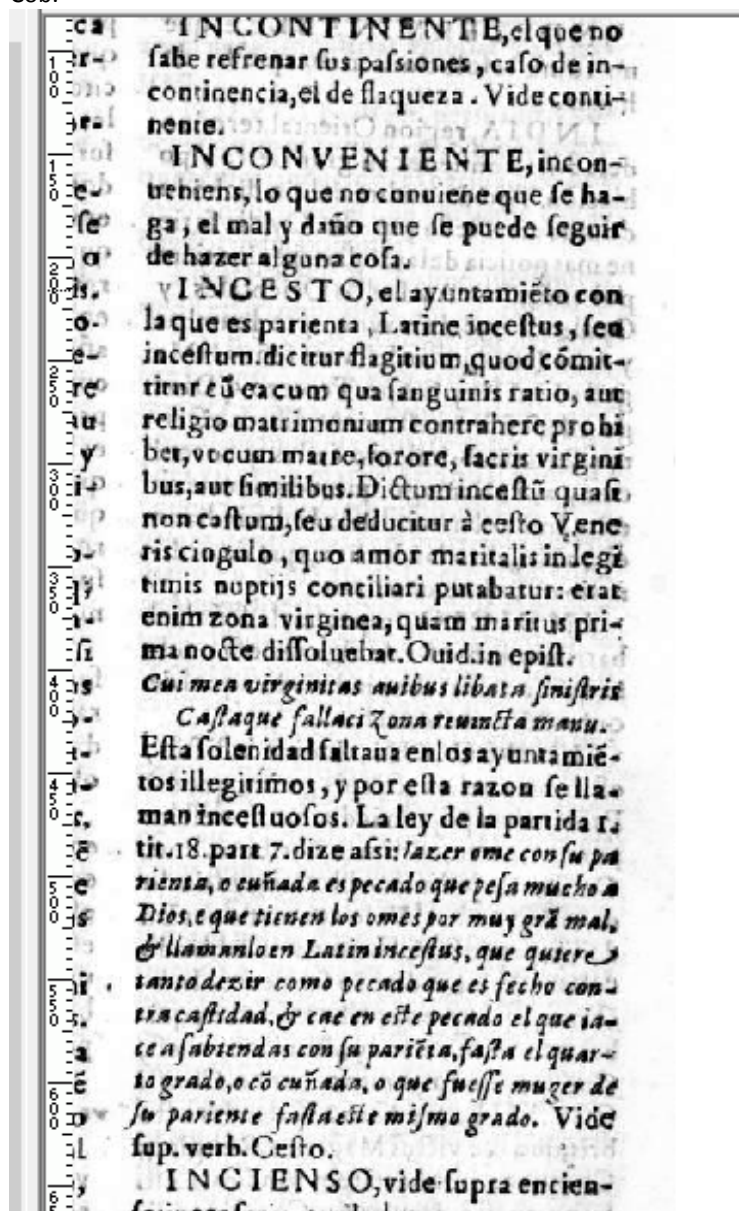 INCONTINENTE, el que no
ſabe refrenar ſus paſsiones, caſo de in-
continencia, el de flaqueza. Vide conti-
nente.
INCONVENIENTE, incon-
ueniens, lo que no conuiene que ſe ha-
ga, el mal y daño que ſe puede ſeguir
de hazer alguna coſa.
INCESTO, el ayuntamiẽto con
la que es parienta, Latine inceſtus, ſeu
inceſtum dicitur flagitium, quod cómit-
titur cũ ea cum qua ſanguinis ratio, aut
religio matrimonium contrahere prohi
bet, vt cum matre, ſorore, ſacris virgini
bus, aut ſimilibus. Dictum inceſtũ quaſi
non caſtum, ſeu deducitur à ceſto Vene
ris cingulo, quo amor maritalis in legi
timis nuptijs conciliari putabatur: erat
enim zona virginea, quam maritus pri-
ma nocte diſſoluebat. Ouid. in epiſt.
Cui mea virginitas auibus libata ſiniſtris
Caſtaque fallaci zona reuincta manu.
Eſta ſolenidad faltaua en los ayuntamiẽ-
tos illegitimos, y por eſta razon ſe lla-
man inceſtuoſos. La ley de la partida 1.
tit. 18. part 7. dize aſsi: Iazer ome con ſu pa
rienta, o cuñada es pecado que peſa mucho a
Dios, e que tienen los omes por muy grã mal,
& llamanlo en Latin inceſtus, que quiere
tanto dezir como pecado que es fecho con-
tra caſtidad, & cae en eſte pecado el que ia-
ce a ſabiendas con ſu pariẽta, faſta el quar-
to grado, o cõ cuñada, o que fueſſe muger de
ſu pariente faſta eſte miſmo grado. Vide
ſup. verb. Ceſto.
INCIENSO, vide ſupra encien-